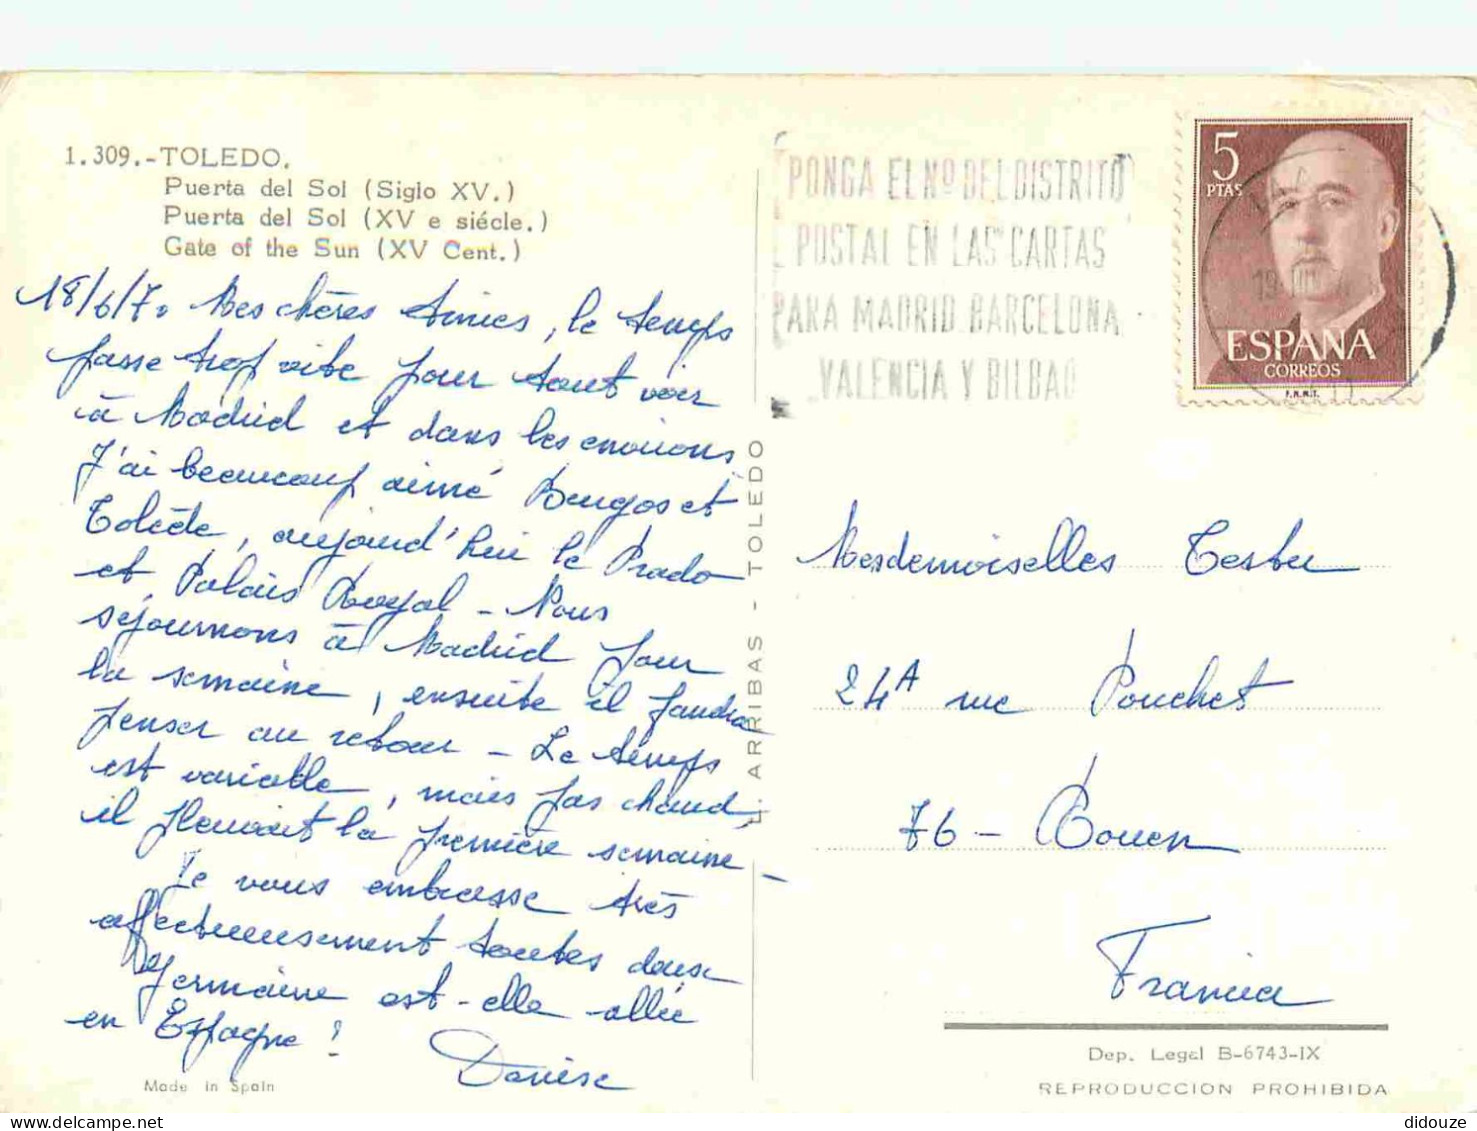 1.309.-TOLEDO.
Puerta del Sol (Siglo XV.)
Puerta del Sol (XV e siécle.)
Gate of the Sun (XV Cent.)
18/6/70 Mes chères Amies, le temps
passe trop vite pour tout voir
à Madrid et dans les environs
J'ai beaucoup aimé Burgos et
Tolède, aujourd'hui le Prado
et Palais Royal - Nous
séjournons à Madrid pour
la semaine, ensuite il faudra
penser au retour - Le temps
est variable, mais pas chaud,
il pleuvait la première semaine -
Je vous embrasse très
affectueusement toutes deux
Germaine est-elle allée
en Espagne !
Denise
Made in Spain
L. ARRIBAS - TOLEDO
PONGA EL Nº DEL DISTRITO
POSTAL EN LAS CARTAS
PARA MADRID BARCELONA
VALENCIA Y BILBAO
5
PTAS
ESPAÑA
CORREOS
F.N.M.T.
19
Mesdemoiselles Testu
24A rue Pouchet
76 - Rouen
Francia
Dep. Legal B-6743-IX
REPRODUCCION PROHIBIDA
didouze